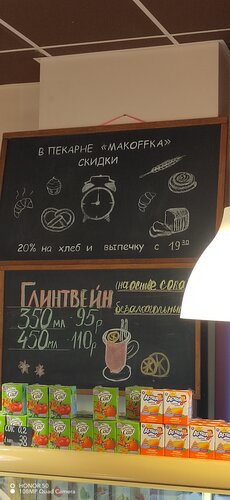 В ПЕКАРНЕ «МАКОFFКА»
СКИДКИ
20% НА ХЛЕБ И ВЫПЕЧКУ С 19 30
ГЛИНТВЕЙН
(НА ОСНОВЕ СОКА
БЕЗАЛКОГОЛЬНЫЙ
350 МЛ 95 Р
450 МЛ 110 Р
HONOR 50
108MP Quad Camera